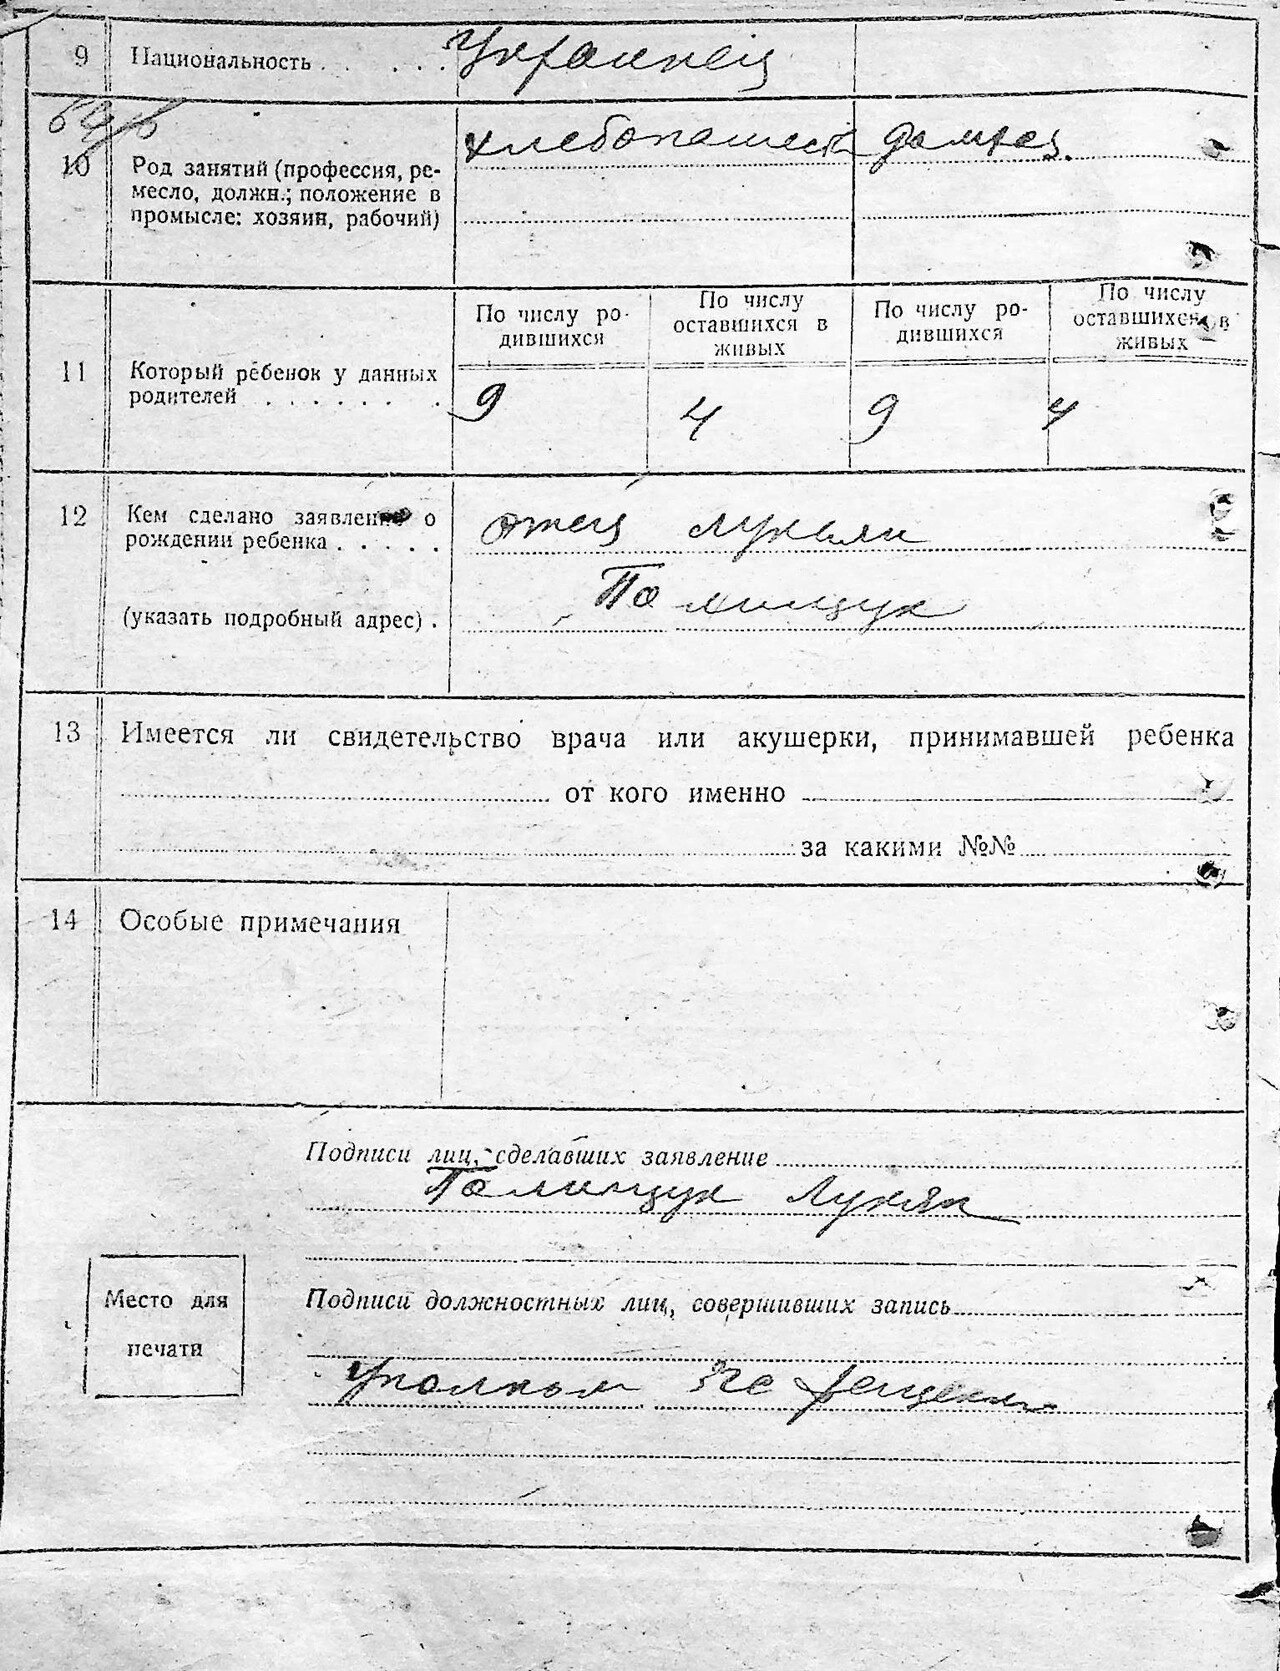 9 Национальность . . . . . Украинец
10 Род занятий (профессия, ре-
месло, должн.; положение в
промысле: хозяин, рабочий)
хлебопашест домхоз.
11 Который ребенок у данных
родителей . . . . . . .
По числу ро-
дившихся
По числу
оставшихся в
живых
По числу ро-
дившихся
По числу
оставшихся в
живых
9 4 9 4
12 Кем сделано заявление о
рождении ребенка . . . . .
отец Лукьян
(указать подробный адрес) .
Полищук
13 Имеется ли свидетельство врача или акушерки, принимавшей ребенка
от кого именно
за какими №№
14 Особые примечания
Подписи лиц, сделавших заявление
Полищук Лукян
Место для
печати
Подписи должностных лиц, совершивших запись